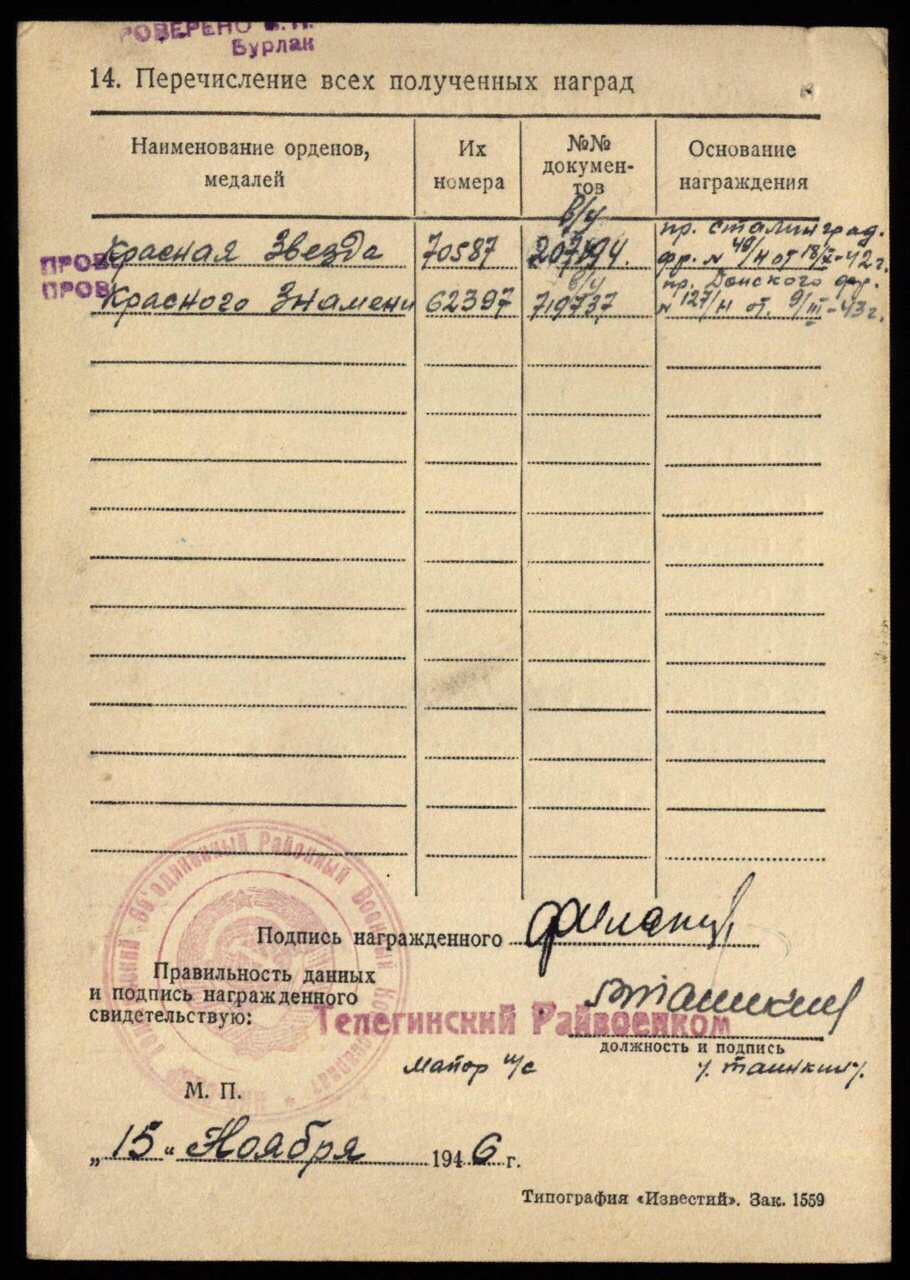 РОВЕРЕНО
Бурлак
14. Перечисление всех полученных наград
Наименование орденов,
медалей
Их
номера
№№
докумен-
тов
Основание
награждения
ПРОВ
Красная Звезда
70587
в/у
207194.
пр. сталинград.
фр. № 49/н от 18/X-42 г.
ПРОВ
Красного Знамени
62397
в/у
719737
пр. Донского фр.
№ 127/н от. 9/III-43 г.
Подпись награжденного
Правильность данных
и подпись награжденного
свидетельствую:
Об'единенный Районный Военный
Телегинский Райвоенком
должность и подпись
майор
/. Ташкин/.
М. П.
„15" Ноября 1946 г.
Типография «Известий». Зак. 1559